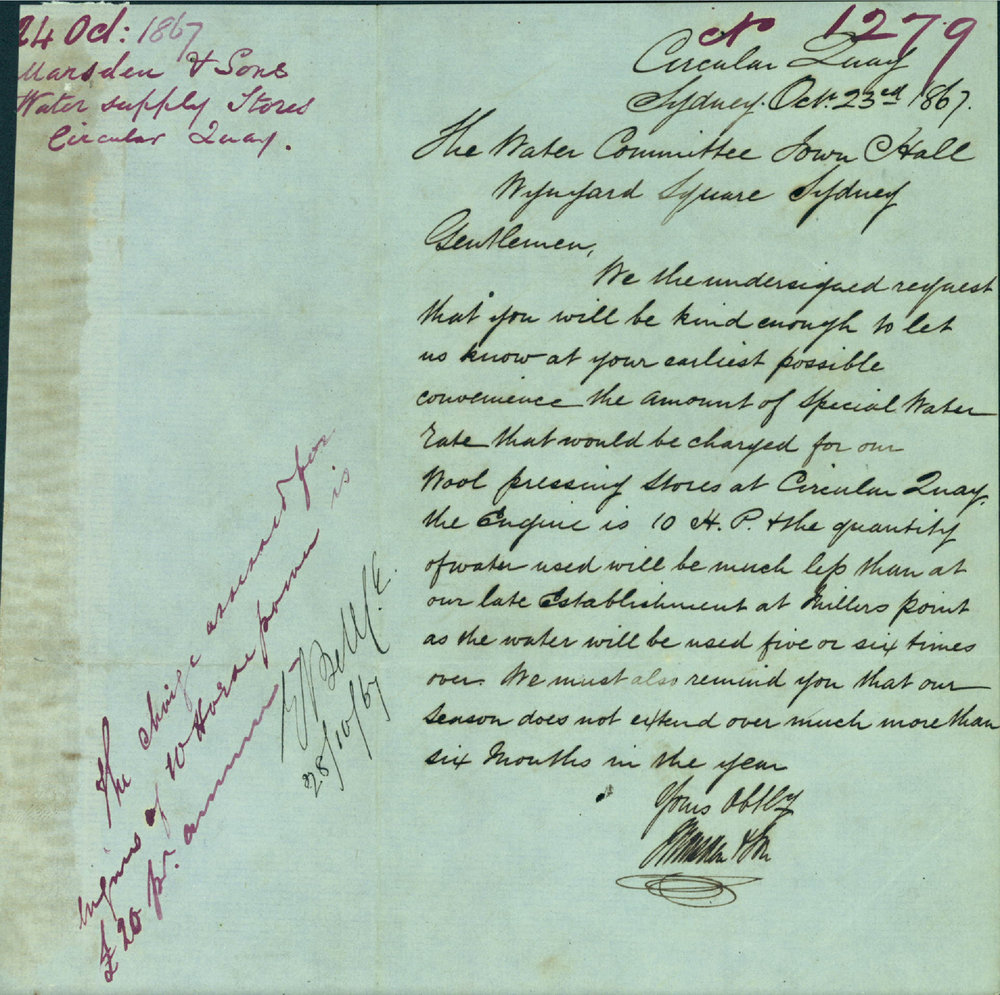 24 Oct: 1867
Marsden & Sons
Water supply Stores
Circular Quay.
No 1279
Circular Quay
Sydney. Octr. 23rd 1867.
The Water Committee Town Hall
Wynyard Square Sydney
Gentlemen,
We the undersigned request
that you will be kind enough to let
us know at your earliest possible
convenience the amount of Special Water
Rate that would be charged for our
Wool pressing Stores at Circular Quay.
the Engine is 10 H. P. & the quantity
of water used will be much less than at
our late Establishment at Millers point
as the water will be used five or six times
over. We must also remind you that our
season does not extend over much more than
six Months in the year
Yours Obtly
Marsden & Son
The charge assessed for
engines of 10 Horse power is
£20 pr. annum
Bell C.E.
28/10/67